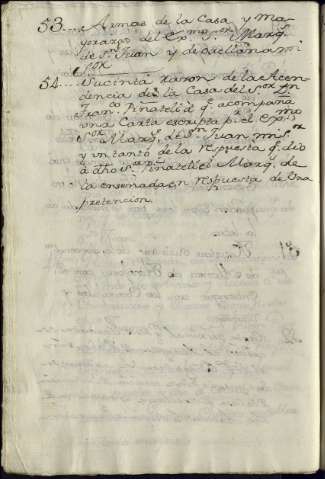 53... Armas de la Casa y Ma
yorazgo del Exmo Sor Marqs
de Sn Juan y de Orellana mi
Sor
54... Sucinta razon de la Acen
dencia de la Casa del Sor Dn
Franco Piñateli q. acompaña
una Carta escripta p.r el Exmo
Sor Marqs de Sn Juan mi Sor
y un tanto de la respuesta q. dio
a dho Sor Piñateli el Marqs de
la ensenada en respuesta de Una
pretencion